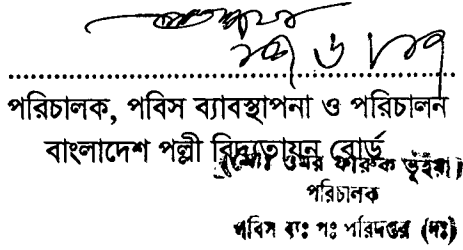 পরিচালক, পবিস ব্যাবস্থাপনা ও পরিচালন
বাংলাদেশ পল্লী বিদ্যুতায়ন বোর্ড
(মোঃ ওমর ফারুক ভূঁইয়া)
পরিচালক
পবিস ব্যঃ পঃ পরিদপ্তর (দঃ)